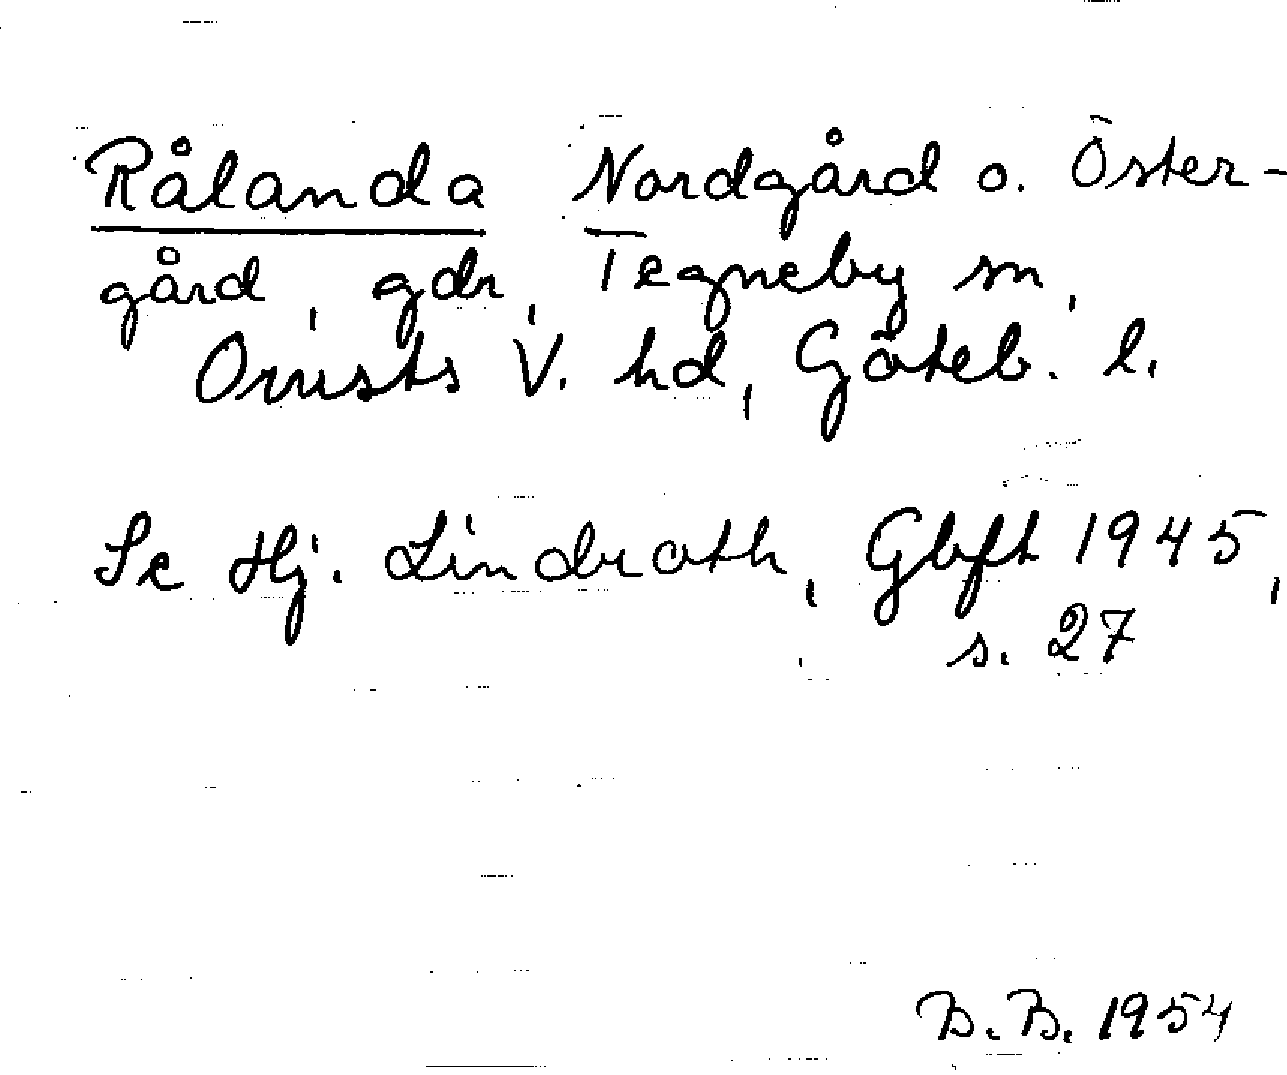 Rålanda Nordgård o. Öster-
gård, gdr, Tegneby sn,
Orusts V. hd, Göteb. l.
Se Hj. Lindroth, Gbft 1945,
s. 27
B.B. 1954